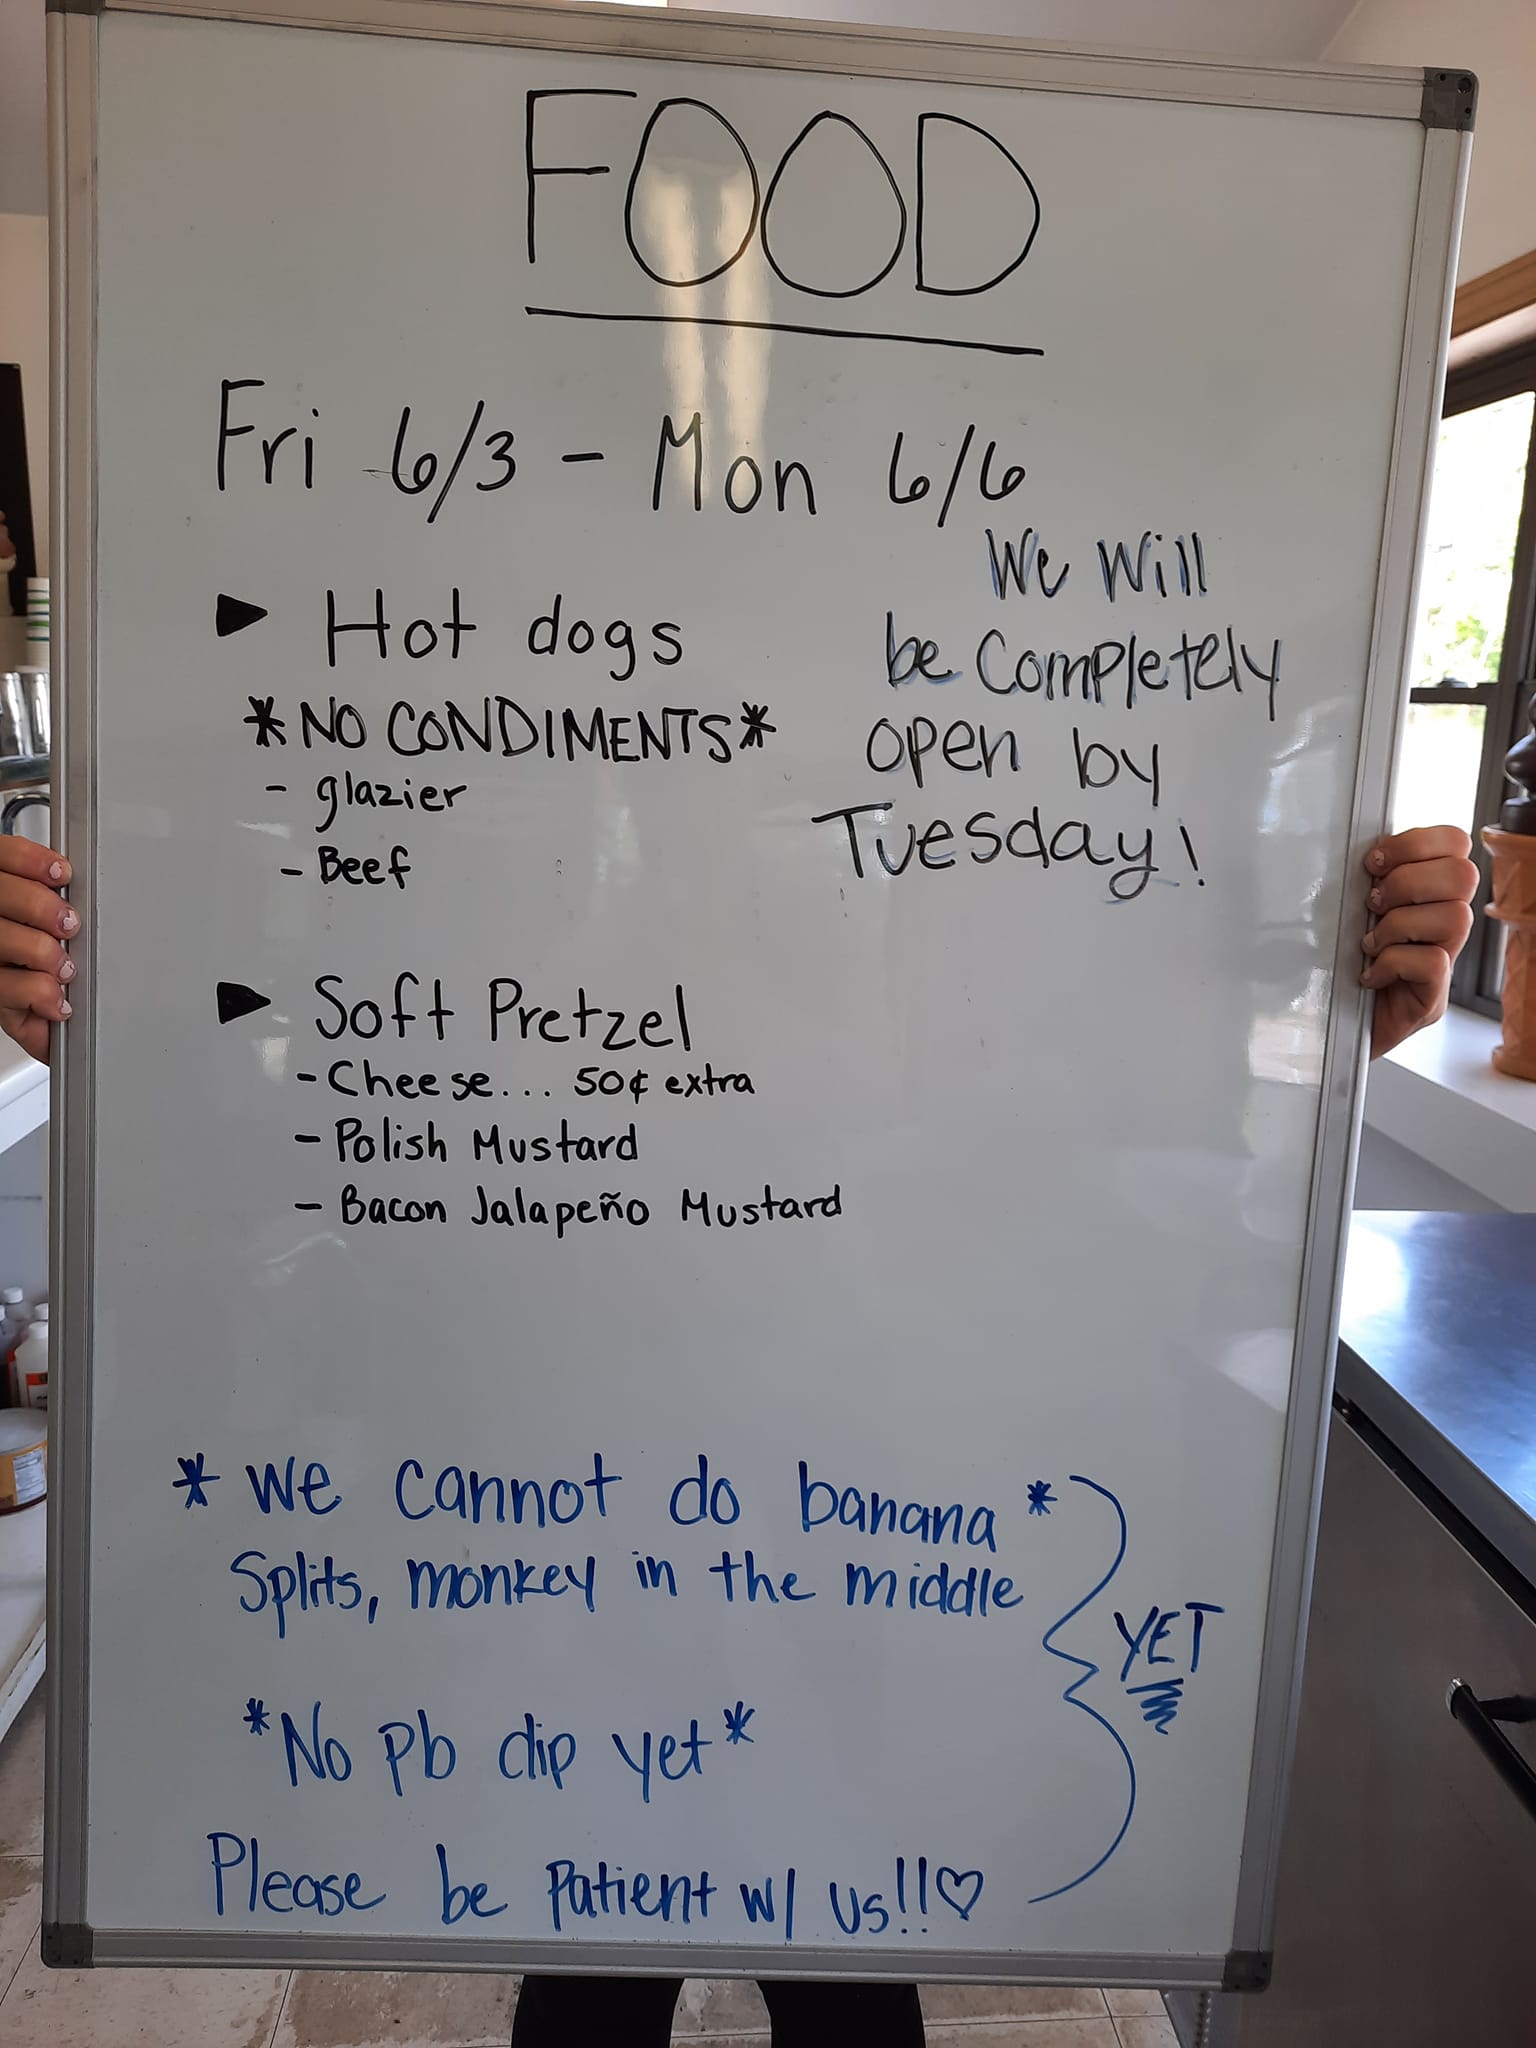 FOOD
Fri 6/3 - Mon 6/6
We Will
be Completely
open by
Tuesday!
► Hot dogs
*NO CONDIMENTS*
- glazier
- Beef
► Soft Pretzel
- Cheese... 50¢ extra
- Polish Mustard
- Bacon Jalapeño Mustard
* We cannot do banana *
Splits, monkey in the middle
YET
*No pb dip yet*
Please be patient w/ us!!♡